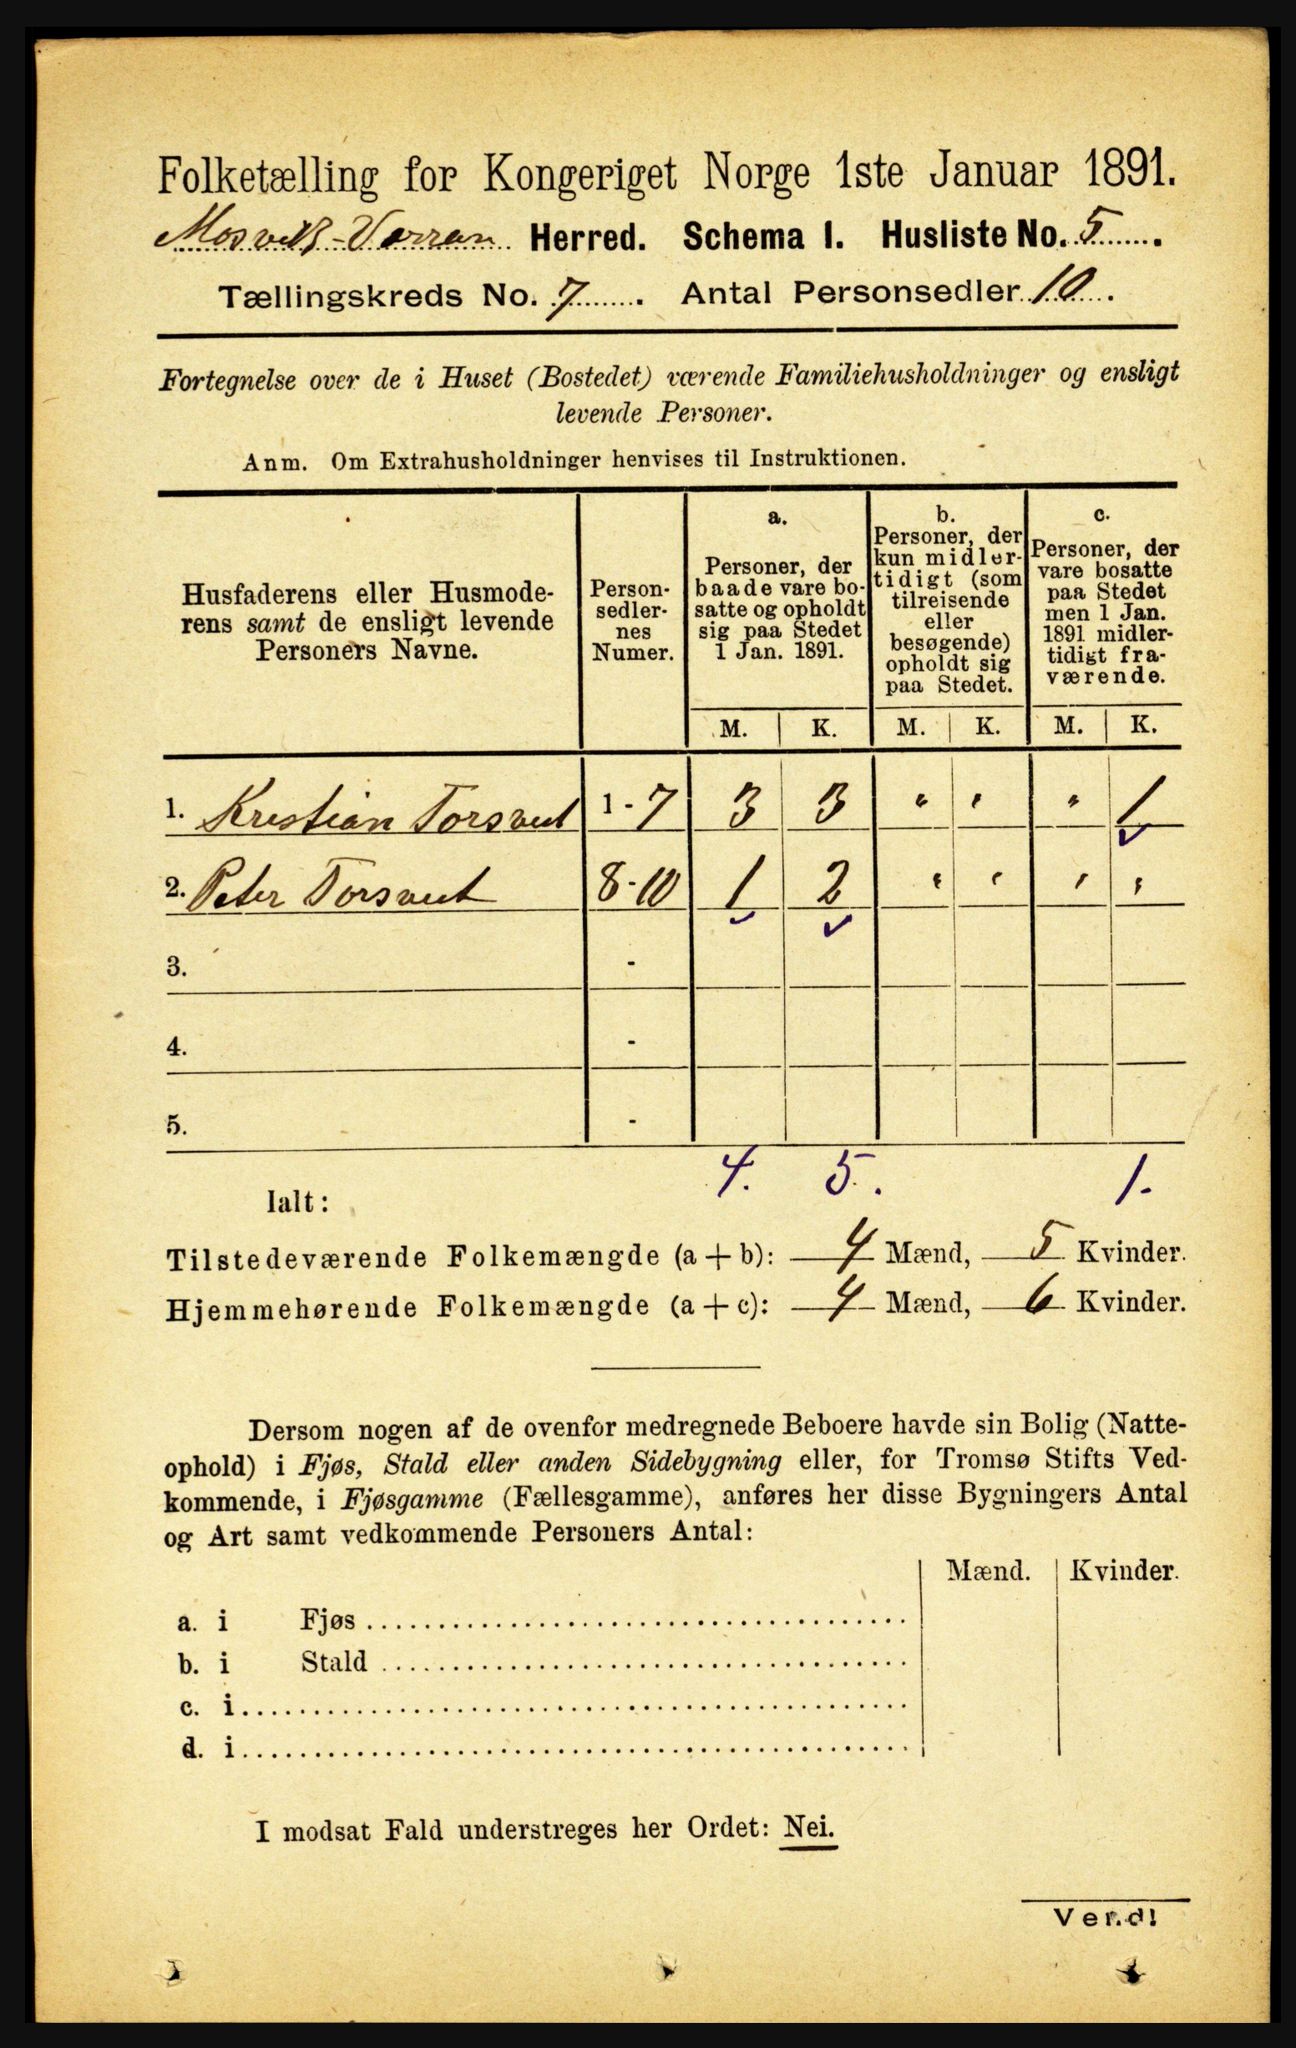 Folketælling for Kongeriget Norge 1ste Januar 1891.
Mosvik-Verran Herred. Schema I. Husliste No. 5.
Tællingskreds No. 7. Antal Personsedler 10.
Fortegnelse over de i Huset (Bostedet) værende Familiehusholdninger og ensligt
levende Personer.
Anm. Om Extrahusholdninger henvises til Instruktionen.
Husfaderens eller Husmode-
rens samt de ensligt levende
Personers Navne.
Person-
sedler-
nes
Numer.
a.
Personer, der
baade vare bo-
satte og opholdt
sig paa Stedet
1 Jan. 1891.
b.
Personer, der
kun midler-
tidigt (som
tilreisende
eller
besøgende)
opholdt sig
paa Stedet.
c.
Personer, der
vare bosatte
paa Stedet
men 1 Jan.
1891 midler-
tidigt fra-
værende.
M. K. M. K. M. K.
1. Kristian Torsvut 1-7 3 3 " " " 1
2. Peter Torsvut 8-10 1 2 " " " "
3. -
4. -
5. -
Ialt: 4. 5. 1.
Tilstedeværende Folkemængde (a + b): 4 Mænd, 5 Kvinder.
Hjemmehørende Folkemængde (a + c): 4 Mænd, 6 Kvinder.
Dersom nogen af de ovenfor medregnede Beboere havde sin Bolig (Natte-
ophold) i Fjøs, Stald eller anden Sidebygning eller, for Tromsø Stifts Ved-
kommende, i Fjøsgamme (Fællesgamme), anføres her disse Bygningers Antal
og Art samt vedkommende Personers Antal:
Mænd. Kvinder.
a. i Fjøs
b. i Stald
c. i
d. i
I modsat Fald understreges her Ordet: Nei.
Vend!